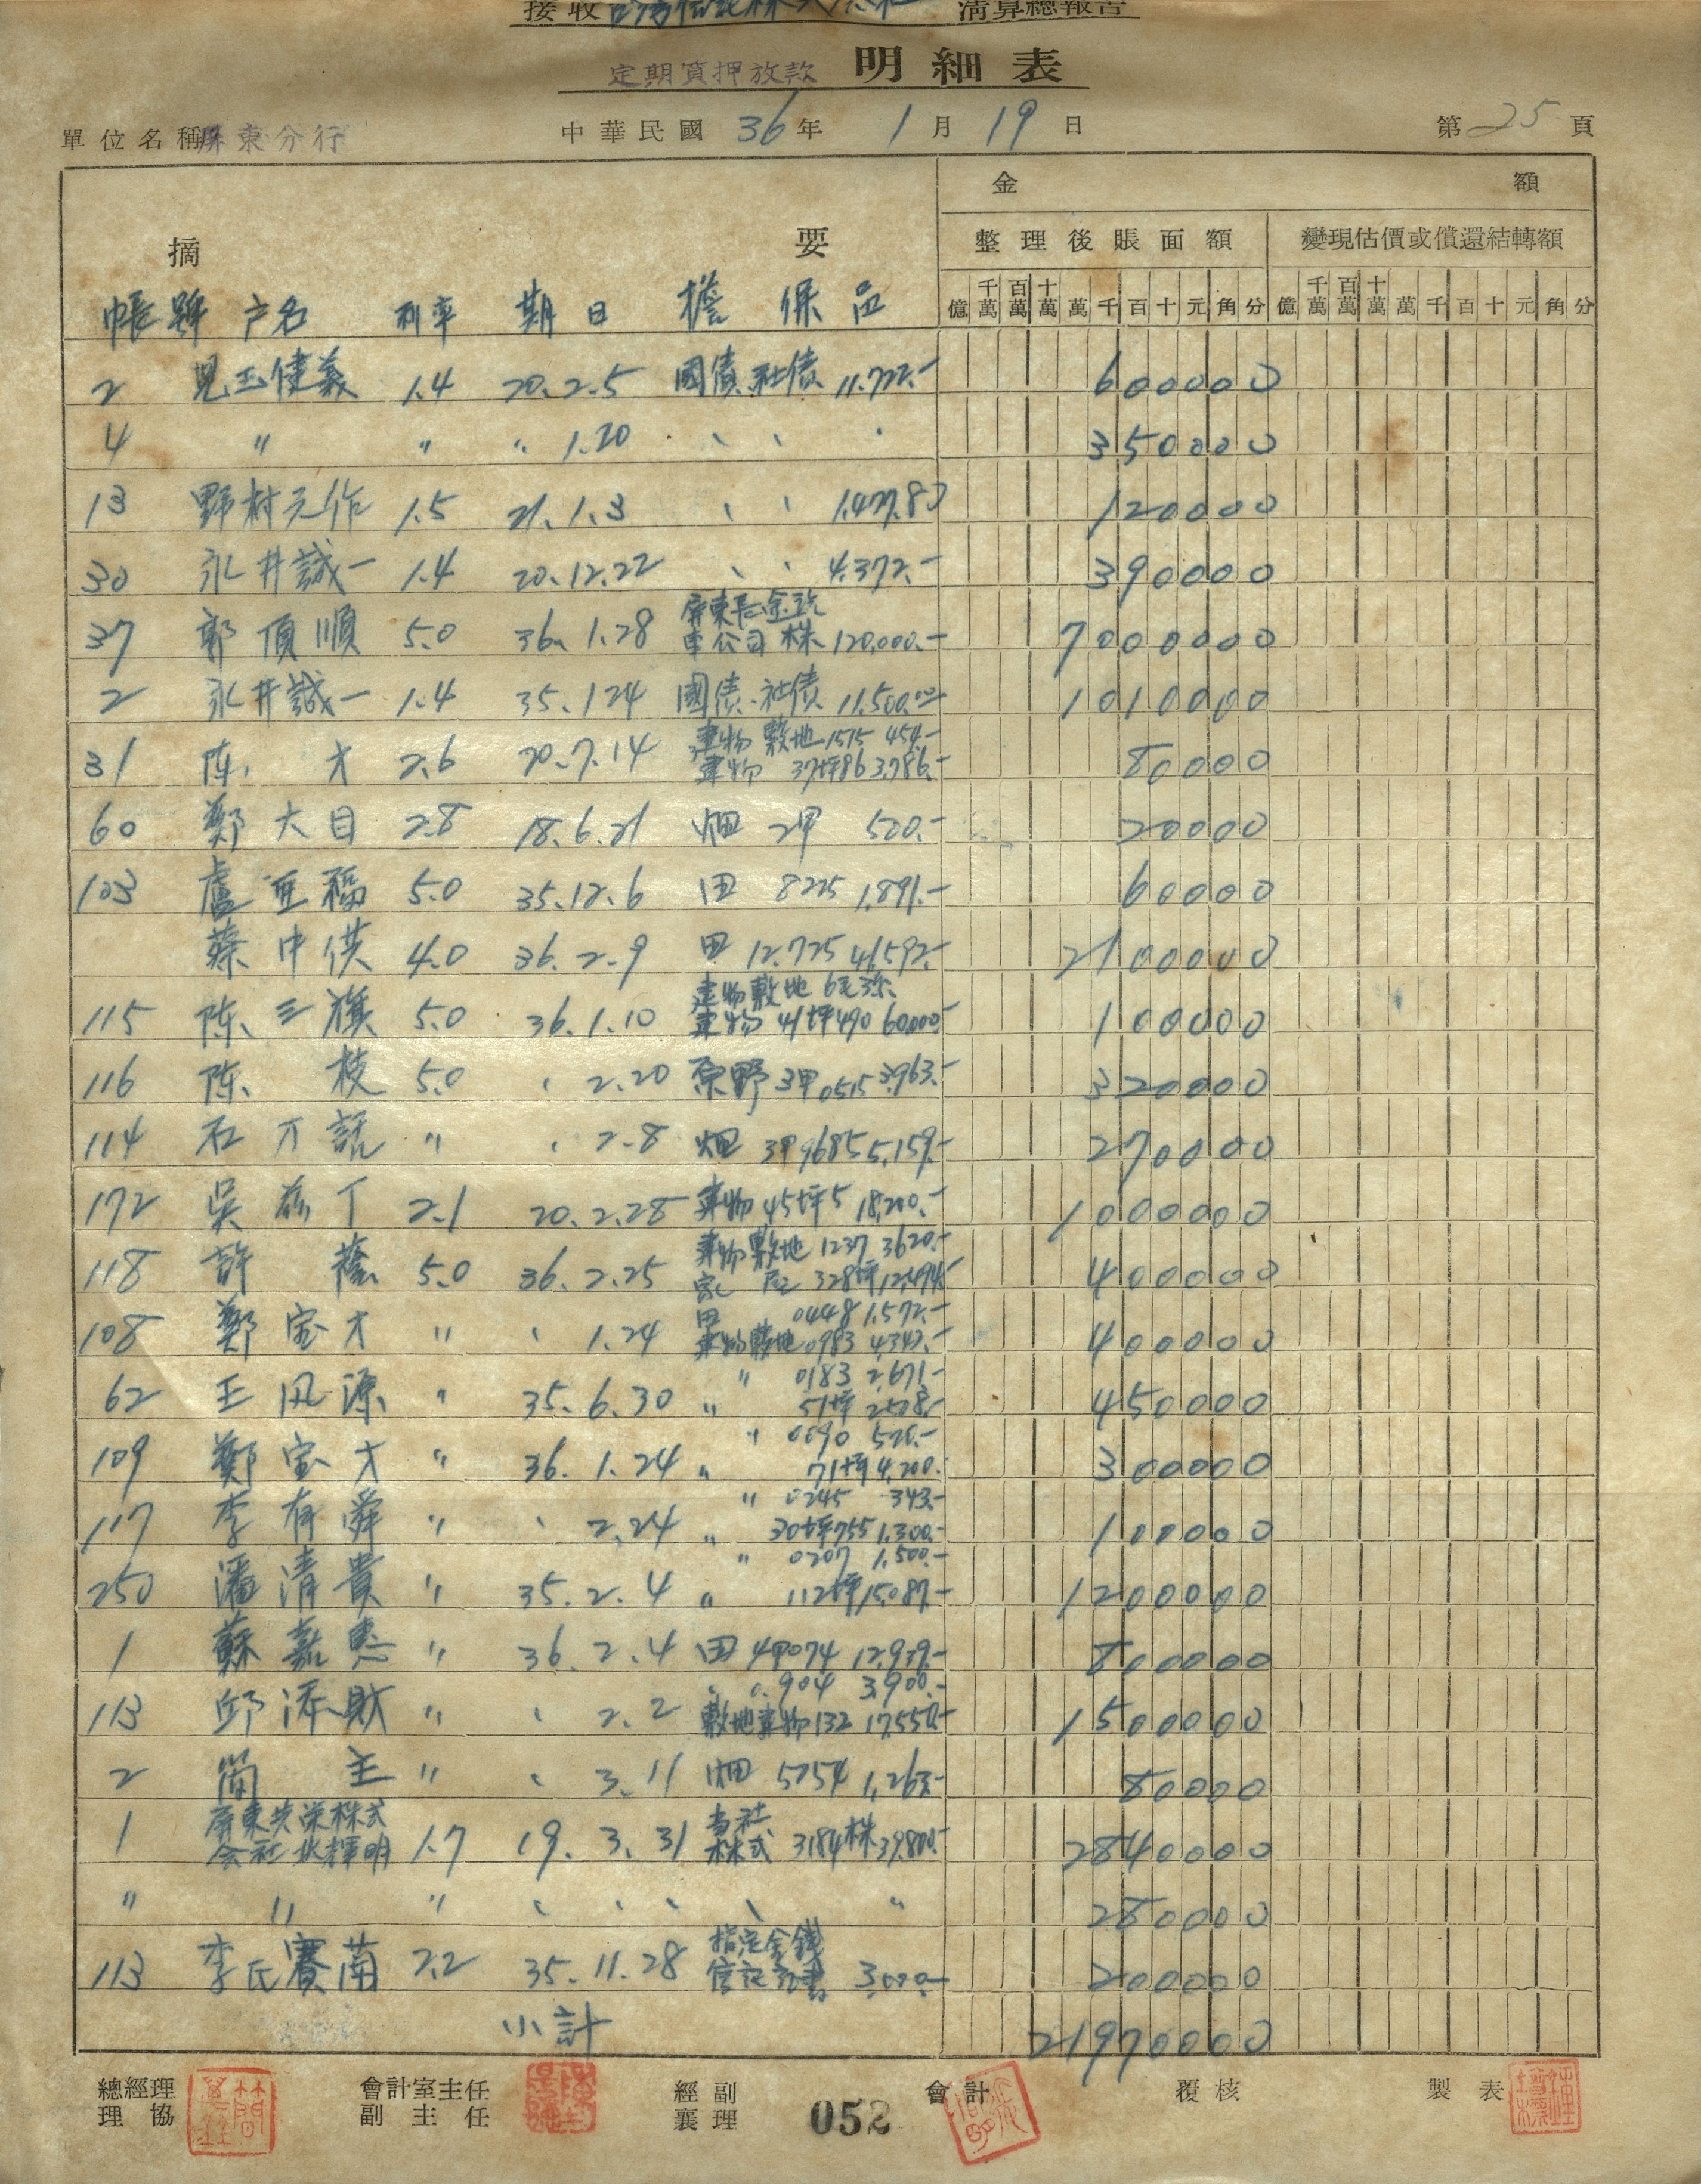 接收 台灣信託株式会社 清算總報告
定期質押放款 明細表
單位名稱 屏東分行 中華民國 36 年 1 月 19 日 第 25 頁
金 額
摘 要 整理後賬面額 變現估價或償還結轉額
億 千萬 百萬 十萬 萬 千 百 十 元 角 分 億 千萬 百萬 十萬 萬 千 百 十 元 角 分
帳號 户名 利率 期日 擔保品
2 児玉健義 1.4 20.2.5 國債.社債 11.722.- 600000
4 〃 〃 〃 1.20 350000
13 野村元作 1.5 21.1.3 1.427.80 120000
30 永井誠一 1.4 20.12.22 4.372.- 390000
37 郭頂順 5.0 36.1.28 屏東長途自動
車公司 株 120.000.- 7000000
2 永井誠一 1.4 35.1.24 國債.社債 11.500.00 1010000
31 陈 才 2.6 20.7.14 建物敷地 1515 454.-
建物 37坪86 3.786.- 80000
60 鄭大目 2.8 18.6.21 畑 2甲 520.- 20000
103 盧亜福 5.0 35.12.6 田 8225 1.891.- 60000
蔡中供 4.0 36.2.9 田 12.725 41.592.- 2100000
115 陈三旗 5.0 36.1.10 建物敷地
建物 41坪490 60.000.- 100000
116 陈 枝 5.0 2.20 原野 3甲0515 3.963.- 320000
114 石才 〃 2.8 畑 3甲9685 5.159.- 270000
172 吳 丁 2.1 20.2.28 建物 45坪5 18.200.- 1000000
118 許 5.0 36.2.25 建物敷地 1237 3620.-
328坪 12.494.- 400000
108 鄭宝才 〃 1.24 田 0448 1.572.-
建物敷地 0983 4.343.- 400000
62 王风源 〃 35.6.30 〃 0183 2.671.-
〃 51坪 2.508.- 450000
109 鄭宝才 〃 36.1.24 〃 0090 520.-
〃 71坪 4.200.- 300000
117 李有舜 〃 2.24 〃 0245 343.-
〃 30坪755 1.300.- 100000
250 潘清貴 〃 35.2.4 〃 0207 1.500.-
〃 112坪 15.087.- 1200000
1 蘇嘉惠 〃 36.2.4 田 4甲074 12.939.- 800000
113 邱添財 〃 2.2 0.904 3.900.-
敷地建物 132 17.550.- 1500000
2 簡 主 〃 3.11 畑 5754 1.263.- 80000
1 屏東共栄株式
会社 輝明 1.7 19.3.31 当社
株式 3184株 39.800.- 2840000
〃 〃 〃 〃 280000
113 李氏賽蘭 2.2 35.11.28 指定金錢
信託証書 3.000.- 200000
小計 21970000
總經理 協理 會計室主任 副主任 經副襄理 052 會計 覆核 製表